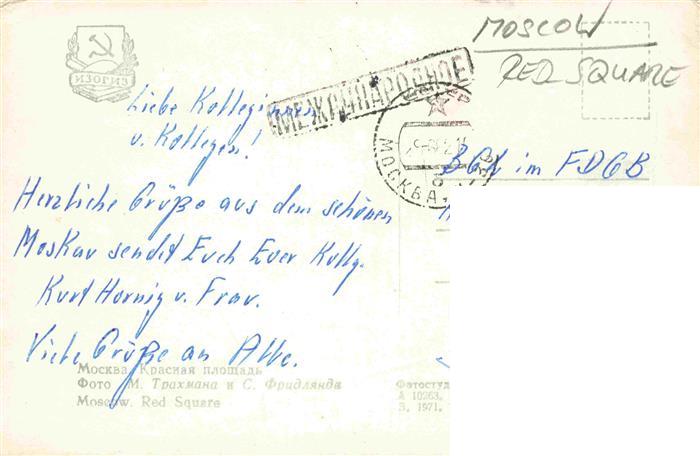 MOSCOW
RED SQUARE
ИЗОГИЗ
МЕЖДУНАРОДНОЕ
МОСКВА
Liebe Kolleginnen
u. Kollegen!
BGL im FDGB
Herzliche Grüße aus dem schönen
Moskau sendet Euch Euer Kollg.
Kurt Hornig u. Frau.
Viele Grüße an Alle.
Москва. Красная площадь
Фото М. Трахмана и С. Фридлянда
Moscow. Red Square
Фотостуд
А 10263.
З. 1971.